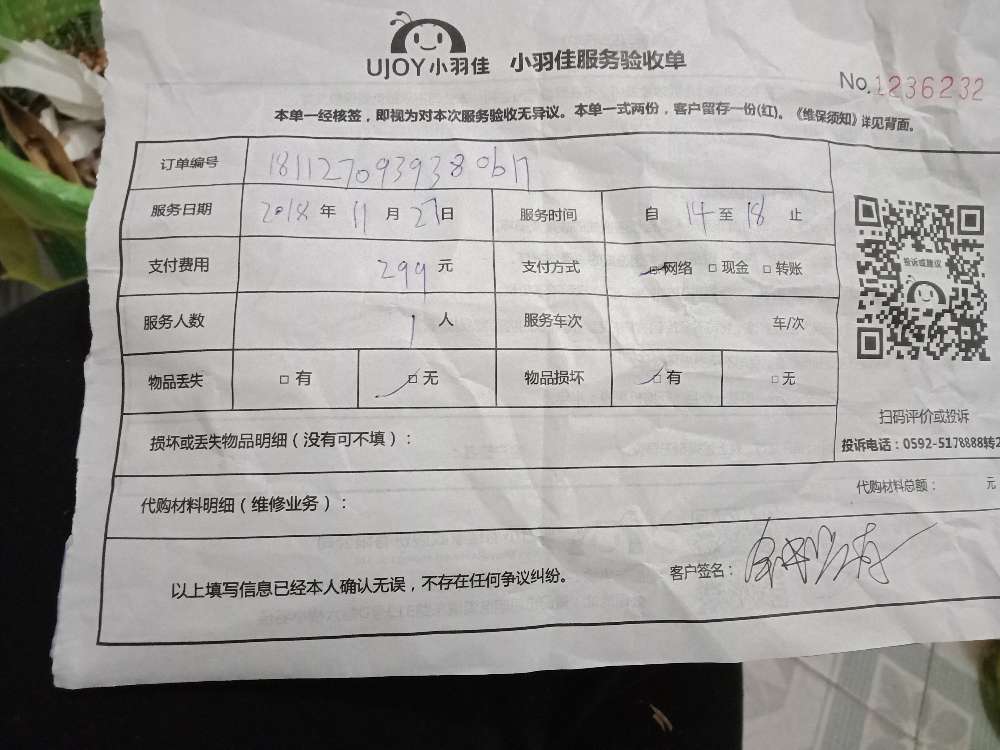 UJOY小羽佳 小羽佳服务验收单
No.1236232
本单一经核签，即视为对本次服务验收无异议。本单一式两份，客户留存一份(红)。《维保须知》详见背面。
订单编号
服务日期 2018 年 11 月 27 日 服务时间 自 14 至 18 止
支付费用 299 元 支付方式 网络 现金 转账
投诉或建议
服务人数 1 人 服务车次 车/次
物品丢失 有 无 物品损坏 有 无
扫码评价或投诉
损坏或丢失物品明细（没有可不填）：
投诉电话：0592-5178888转2
代购材料明细（维修业务）： 代购材料总额： 元
以上填写信息已经本人确认无误，不存在任何争议纠纷。 客户签名：